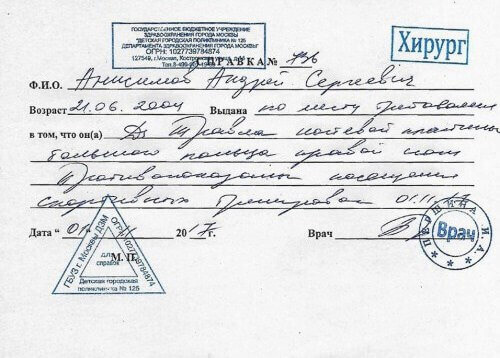 ГОСУДАРСТВЕННОЕ БЮДЖЕТНОЕ УЧРЕЖДЕНИЕ
ЗДРАВООХРАНЕНИЯ ГОРОДА МОСКВЫ
"ДЕТСКАЯ ГОРОДСКАЯ ПОЛИКЛИНИКА № 125
ДЕПАРТАМЕНТА ЗДРАВООХРАНЕНИЯ ГОРОДА МОСКВЫ"
ОГРН: 1027739784874
127549, г.Москва,
Хирург
СПРАВКА №
Ф.И.О. Анисимов Андрей Сергеевич
Возраст 21.06.2004 Выдана по месту требования
в том, что он(а) Ds Травма ногтевой пластины
большого пальца правой
Противопоказаны посещения
спортивных тренировок 01.11.17
Дата " 01 20 17 г. Врач
М. П.
ГБУЗ г. Москвы ДЗМ
ОГРН 1027739784874
для справок
Детская городская
поликлиника № 125
ПЕРШИНА И.А.
Врач